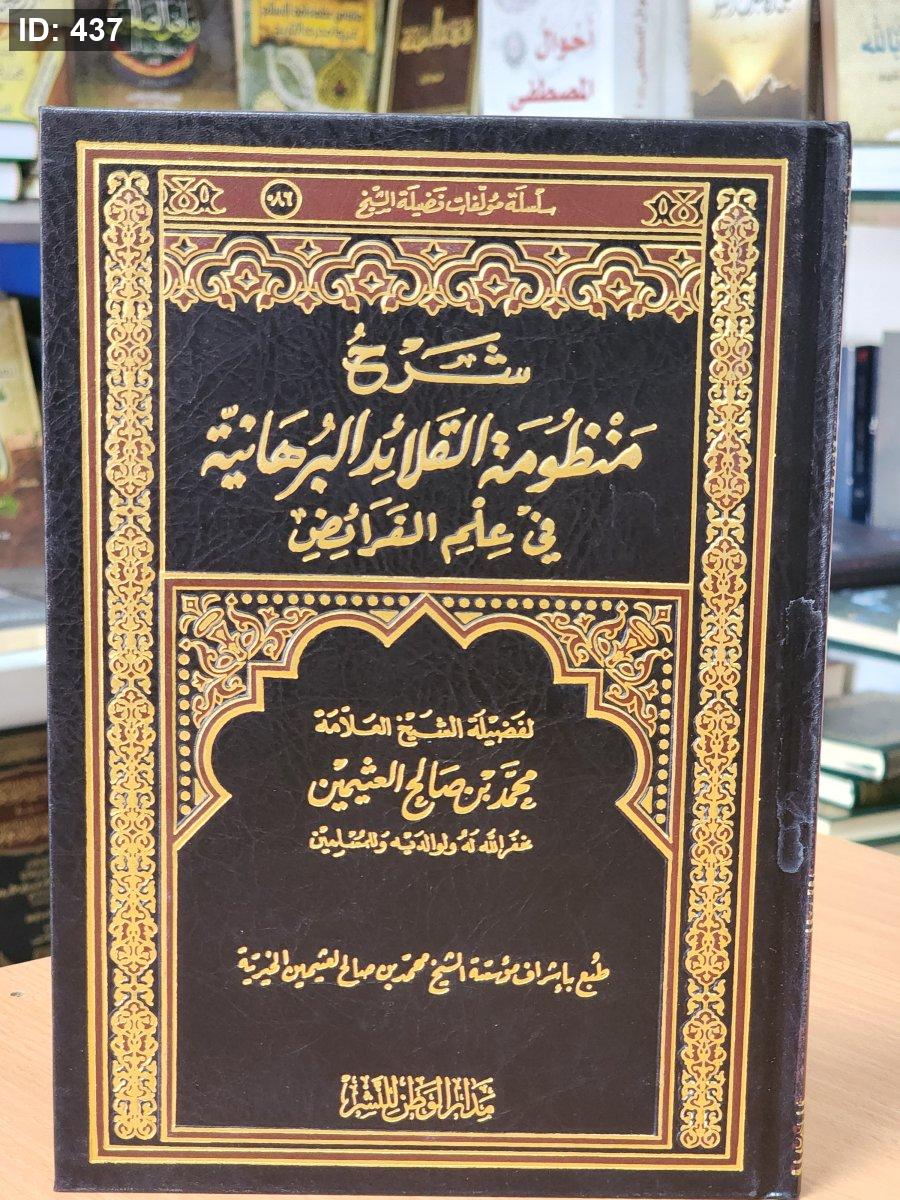 ID: 437
أحوال
المصطفى
سلسلة مؤلفات فضيلة الشيخ ٠٨٦
شَرْحُ
مَنْظُومَة القَلَائِد البُرهَانيّة
فِي عِلْمِ الفَرَائِضِ
لفضيلة الشيخ العلامة
محمَّد بْن صَالح العثيمين
غفر الله له ولوالديه وللمسلمين
طبع بإشراف مؤسسة الشيخ محمد بن صالح العثيمين الخيرية
مدار الوطن للنشر